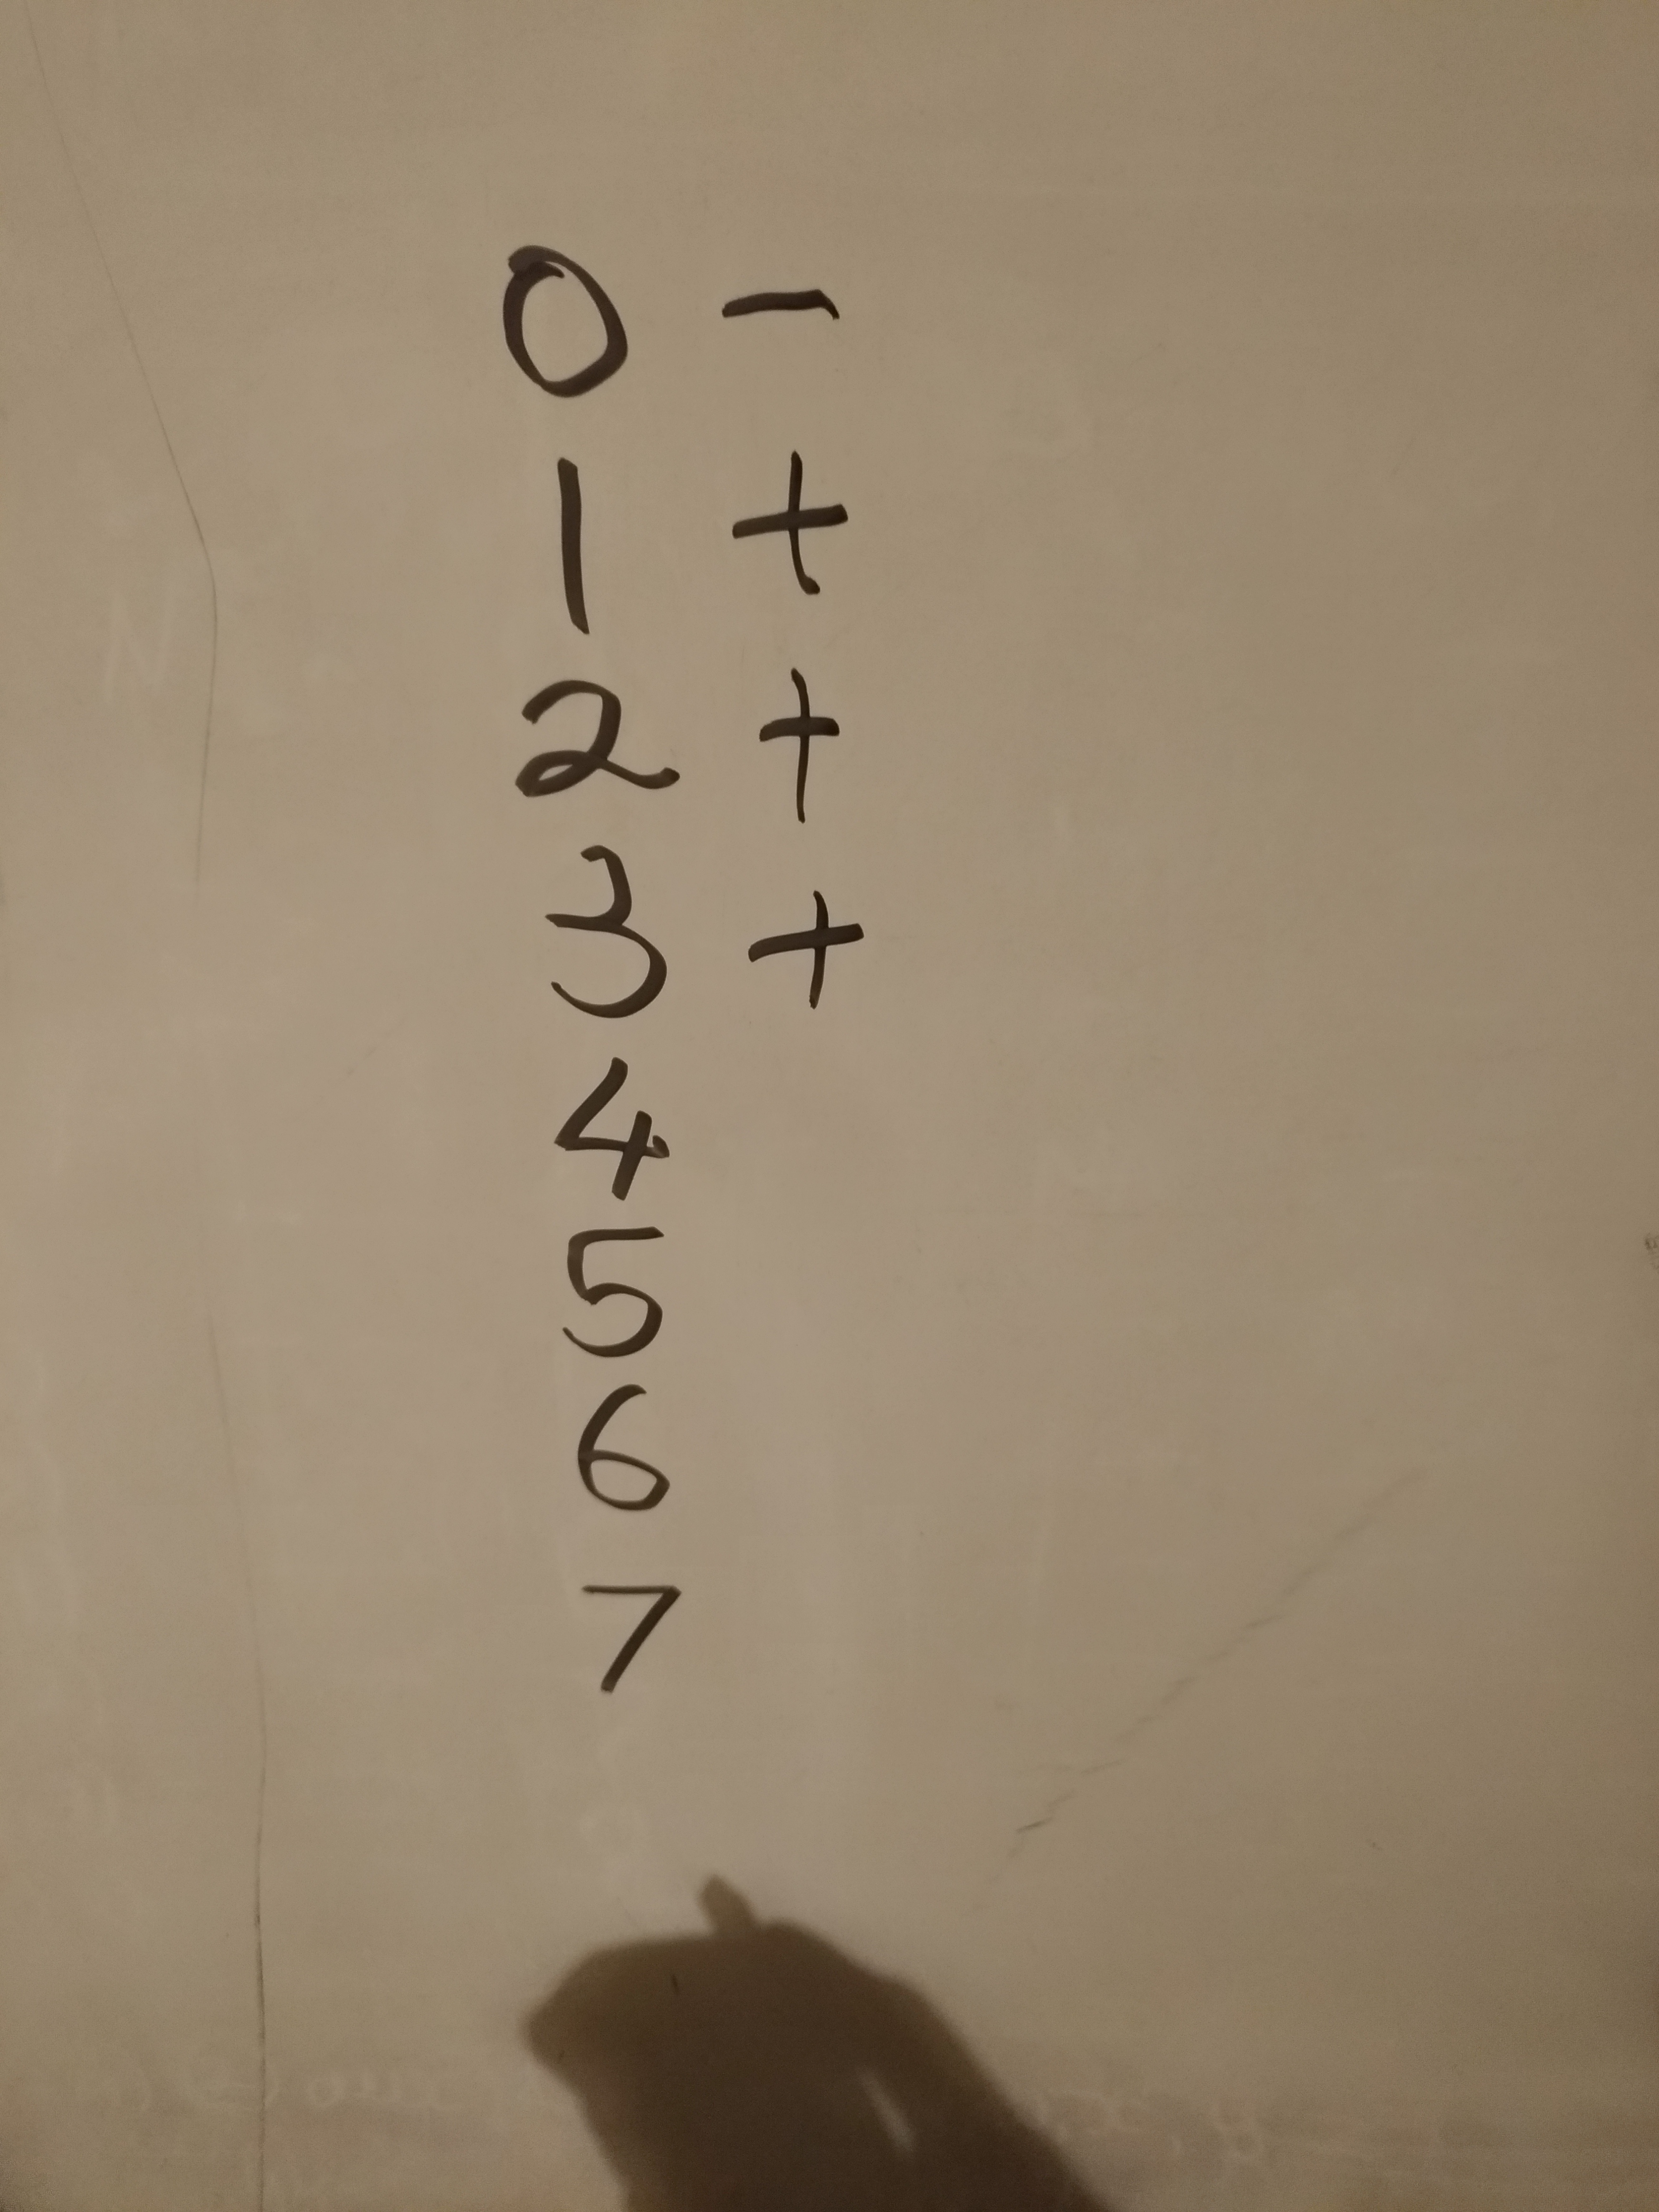 0 -
1 +
2 +
3 +
4
5
6
7